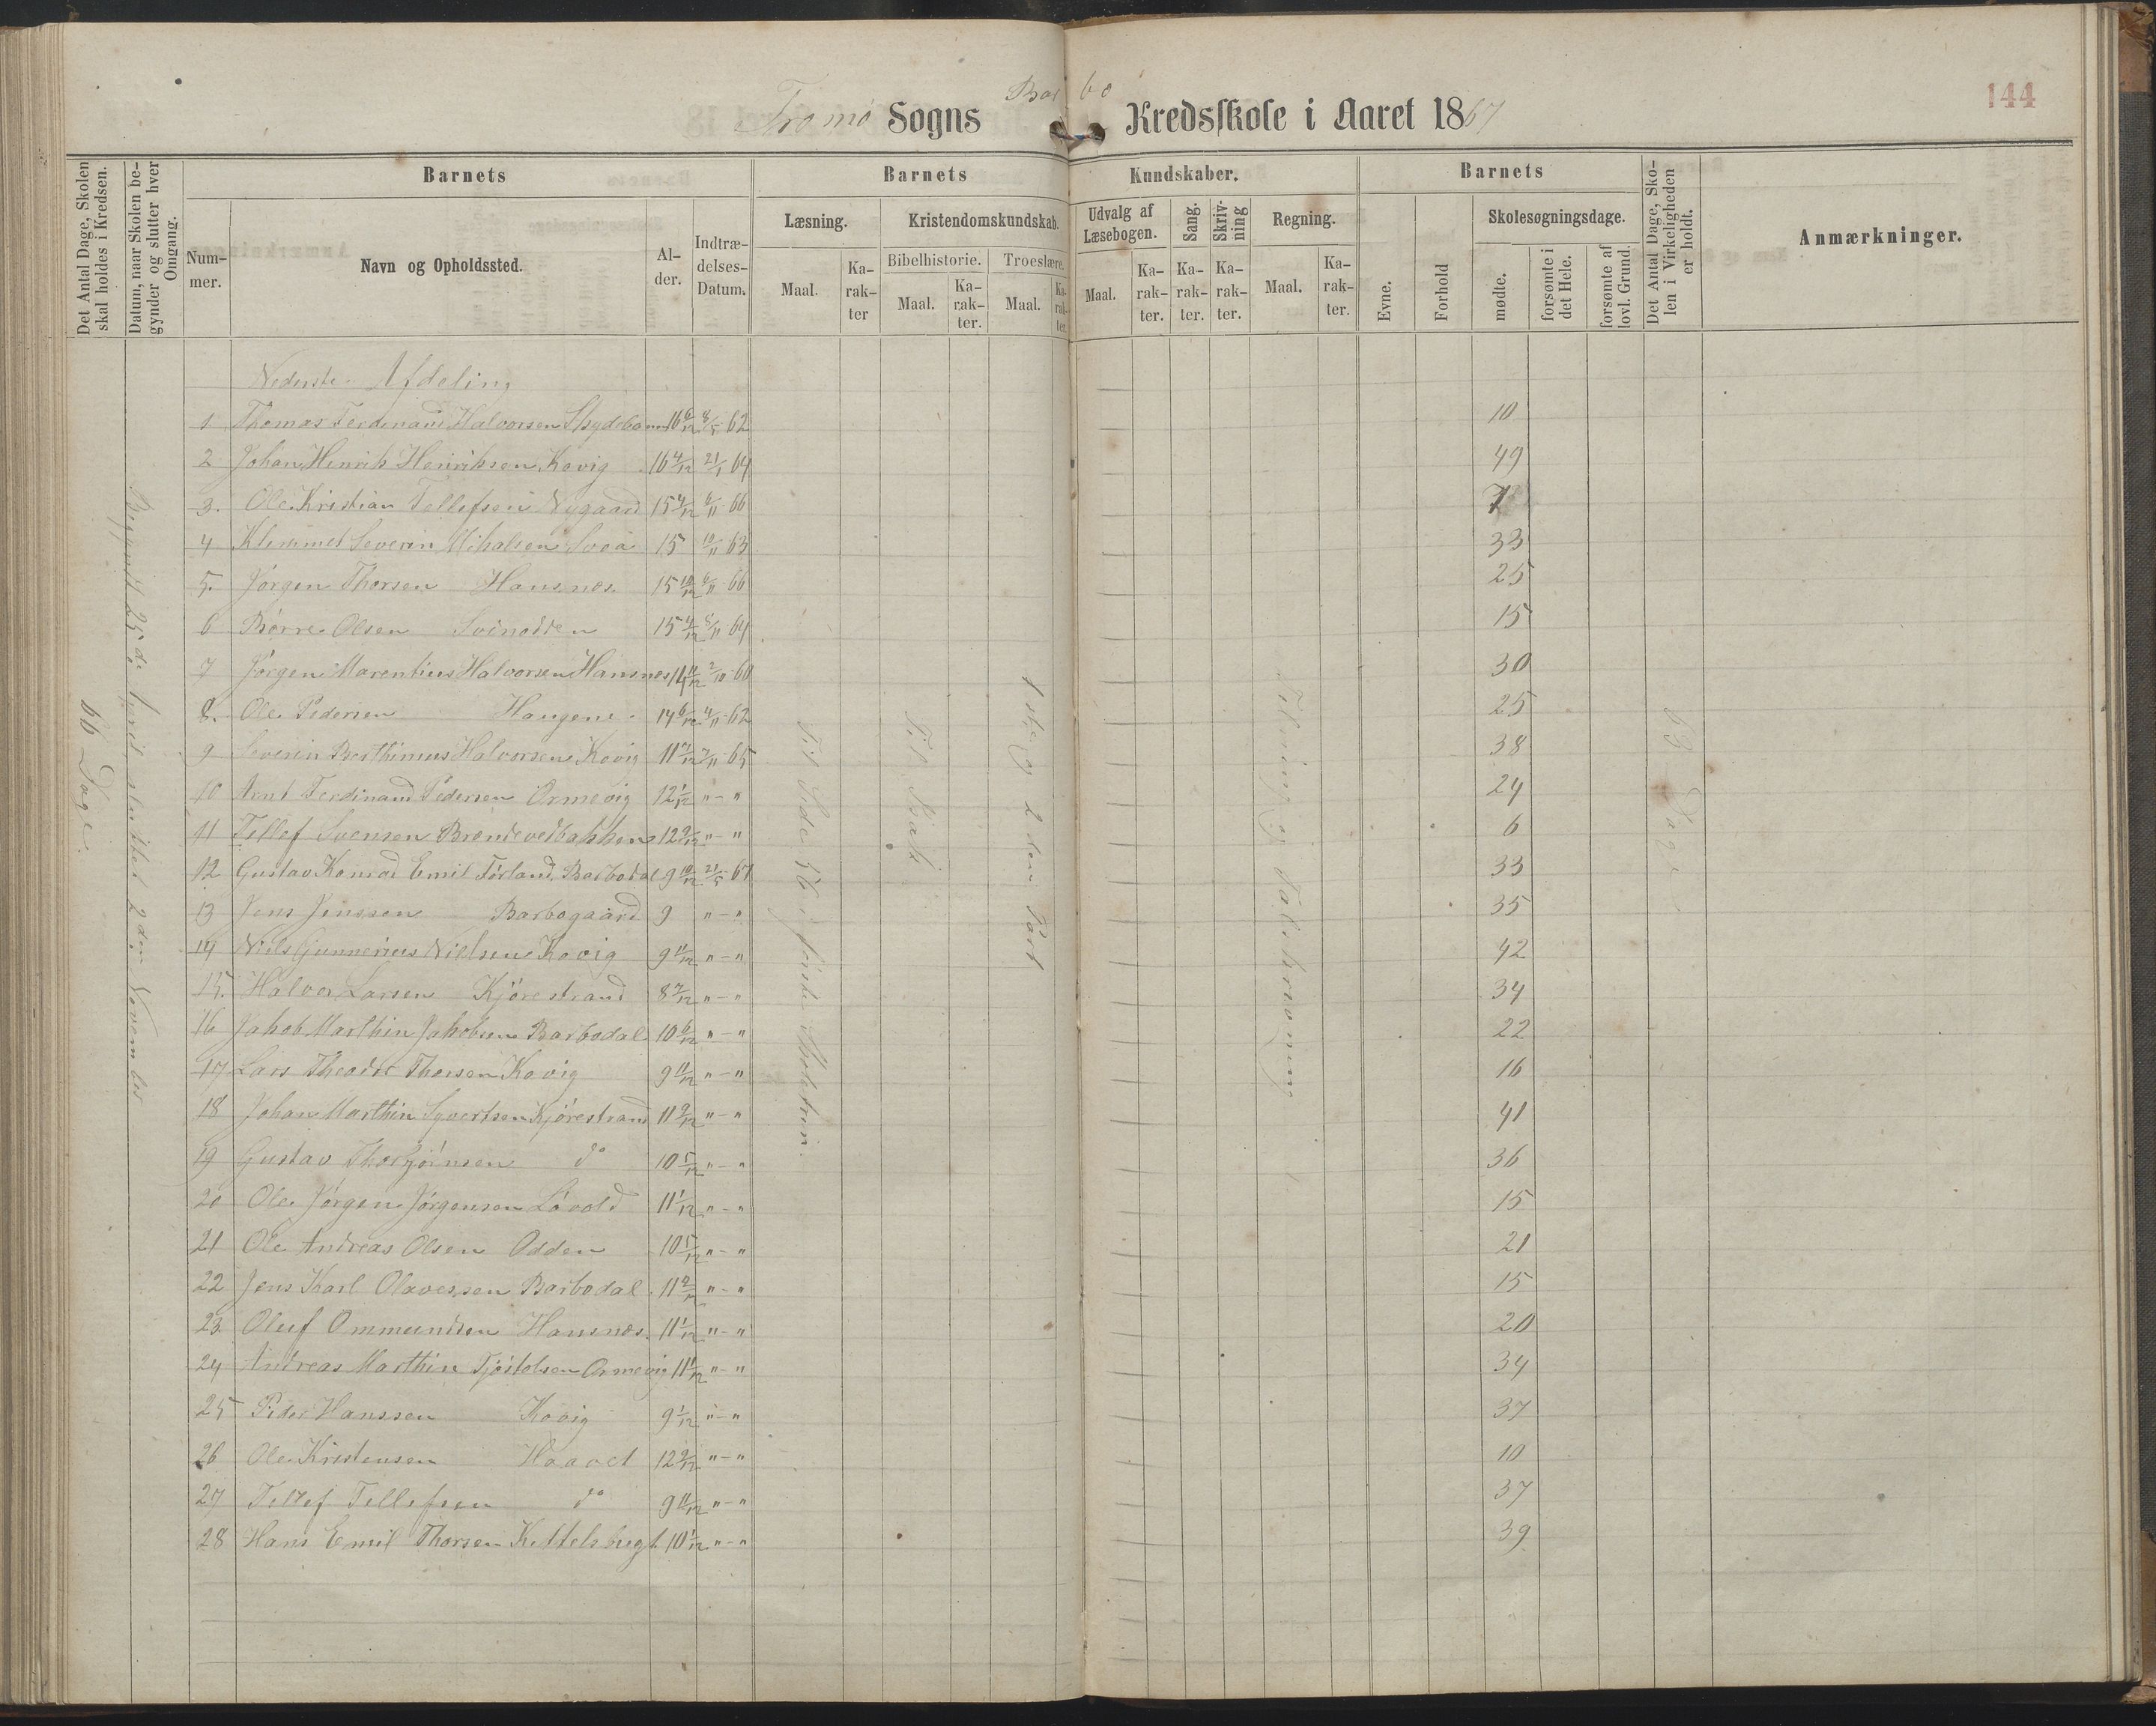 144
Tromø Sogns Barbo Kredsskole i Aaret 1867
Det Antal Dage, Skolen skal holdes i Kredsen.
Datum, naar Skolen begynder og slutter hver Omgang.
Barnets
Nummer.
Navn og Opholdssted.
Alder.
Indtrædelses-Datum.
Barnets Kundskaber.
Læsning.
Maal.
Karakter
Kristendomskundskab.
Bibelhistorie.
Maal.
Karakter.
Troeslære.
Maal.
Karakter.
Udvalg af Læsebogen.
Maal.
Karakter.
Sang.
Karakter.
Skrivning
Karakter.
Regning.
Maal.
Karakter.
Barnets
Evne.
Forhold
Skolesøgningsdage.
mødte.
forsømte i det Hele.
forsømte af lovl. Grund.
Det Antal Dage, Skolen i Virkeligheden er holdt.
Anmærkninger.
66 Dage.
Begyndt 25de April sluttet 2den November
Nederste Afdeling
1 Thomas Ferdinand Halvorsen 16 6/12 62 10
2 Johan Henrik Henriksen Kovig 16 4/12 21/1 64 49
3. Ole Kristian Tellefsen Nygaard 15 4/12 6/11 66 7
4 Klemmet Severin Mikalsen 15 10/11 63 33
5. Jørgen Thorsen Hansnæs 15 10/12 6/11 66 25
6 Børre Olsen Svinodden 15 4/12 5/11 64 15
7 Jørgen Marentius Halvorsen Hansnæs 14 11/12 2/10 60 30
8. Ole Pedersen Haugene 14 6/12 4/11 62 25
9 Severin Berthinius Halvorsen Kovig 11 7/12 7/11 65 38
10 Arnt Ferdinand Pedersen Ormevig 12 1/12 " - " 24
11 Tellef Svensen Brændevedbakken 12 9/12 " - " 6
12 Gustav Konrad Emil Førland Barbodal 9 10/12 21/5 67 33
13 Jens Jenssen Barbogaard 9 " - " 35
14 Niels Gunnerius Nielsen Kovig 9 11/12 " - " 42
15. Halvor Larsen Kjørestrand 8 7/12 " - " 34
16 Jakob Marthin Jakobsen Barbodal 10 6/12 " - " 22
17 Lars Theodor Thorsen Kovig 9 11/12 " - " 16
18 Johan Marthin Syvertsen Kjørestrand 11 9/12 " - " 41
19 Gustav Thorbjørnsen do 10 5/12 " - " 36
20 Ole Jørgen Jørgensen Løvold 11 1/12 " - " 15
21 Ole Andreas Olsen Odden 10 5/12 " - " 21
22 Jens Karl Olavessen Barbodal 11 " - " 15
23 Oluf Ommundsen Hansnæs. 11 1/12 " - " 20
24 Andreas Marthin Tjøstolsen Ormevig 11 1/12 " - " 34
25 Peder Hanssen Kovig 9 1/12 " - " 37
26 Ole Kristensen 12 9/12 " - " 10
27 Tellef Tellefsen do 9 11/12 " - " 37
28 Hans Emil Thorsen Kittelsbugt 10 1/12 " - " 39
Til Side 36 i første
Til Isak
1ste og 2den Part
Telning og Talskrivning
Dage